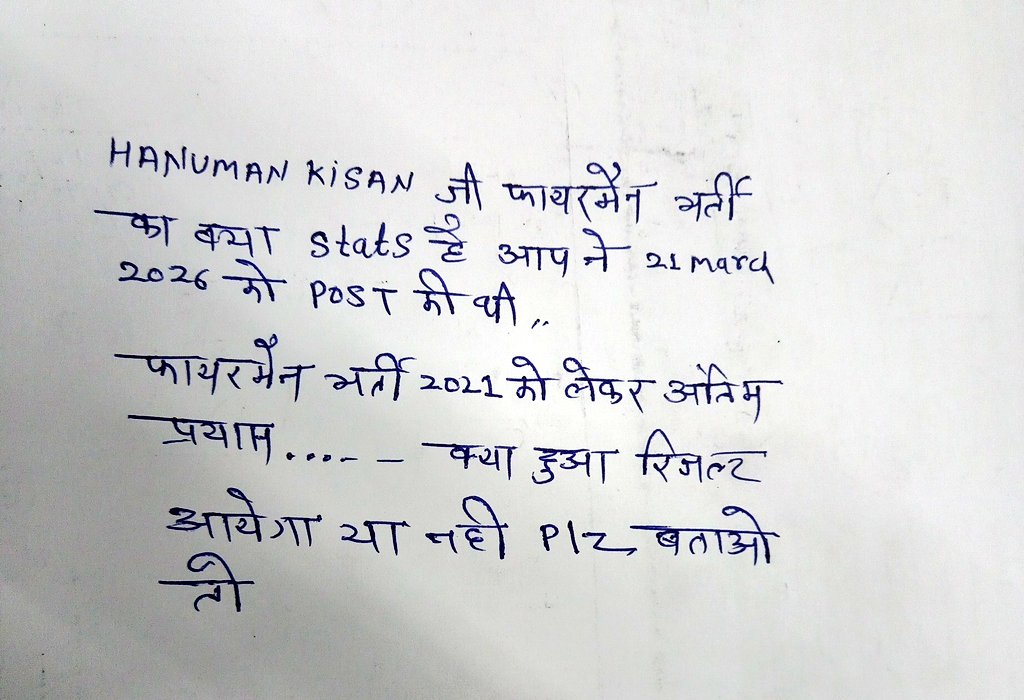 HANUMAN KiSAN जी फायरमैन भर्ती
का क्या stats है आप ने 21 march
2026 को POST की थी ,,
फायरमैन भर्ती 2021 को लेकर अंतिम
प्रयास....-- क्या हुआ रिजल्ट
आयेगा या नही Plz बताओ
तो